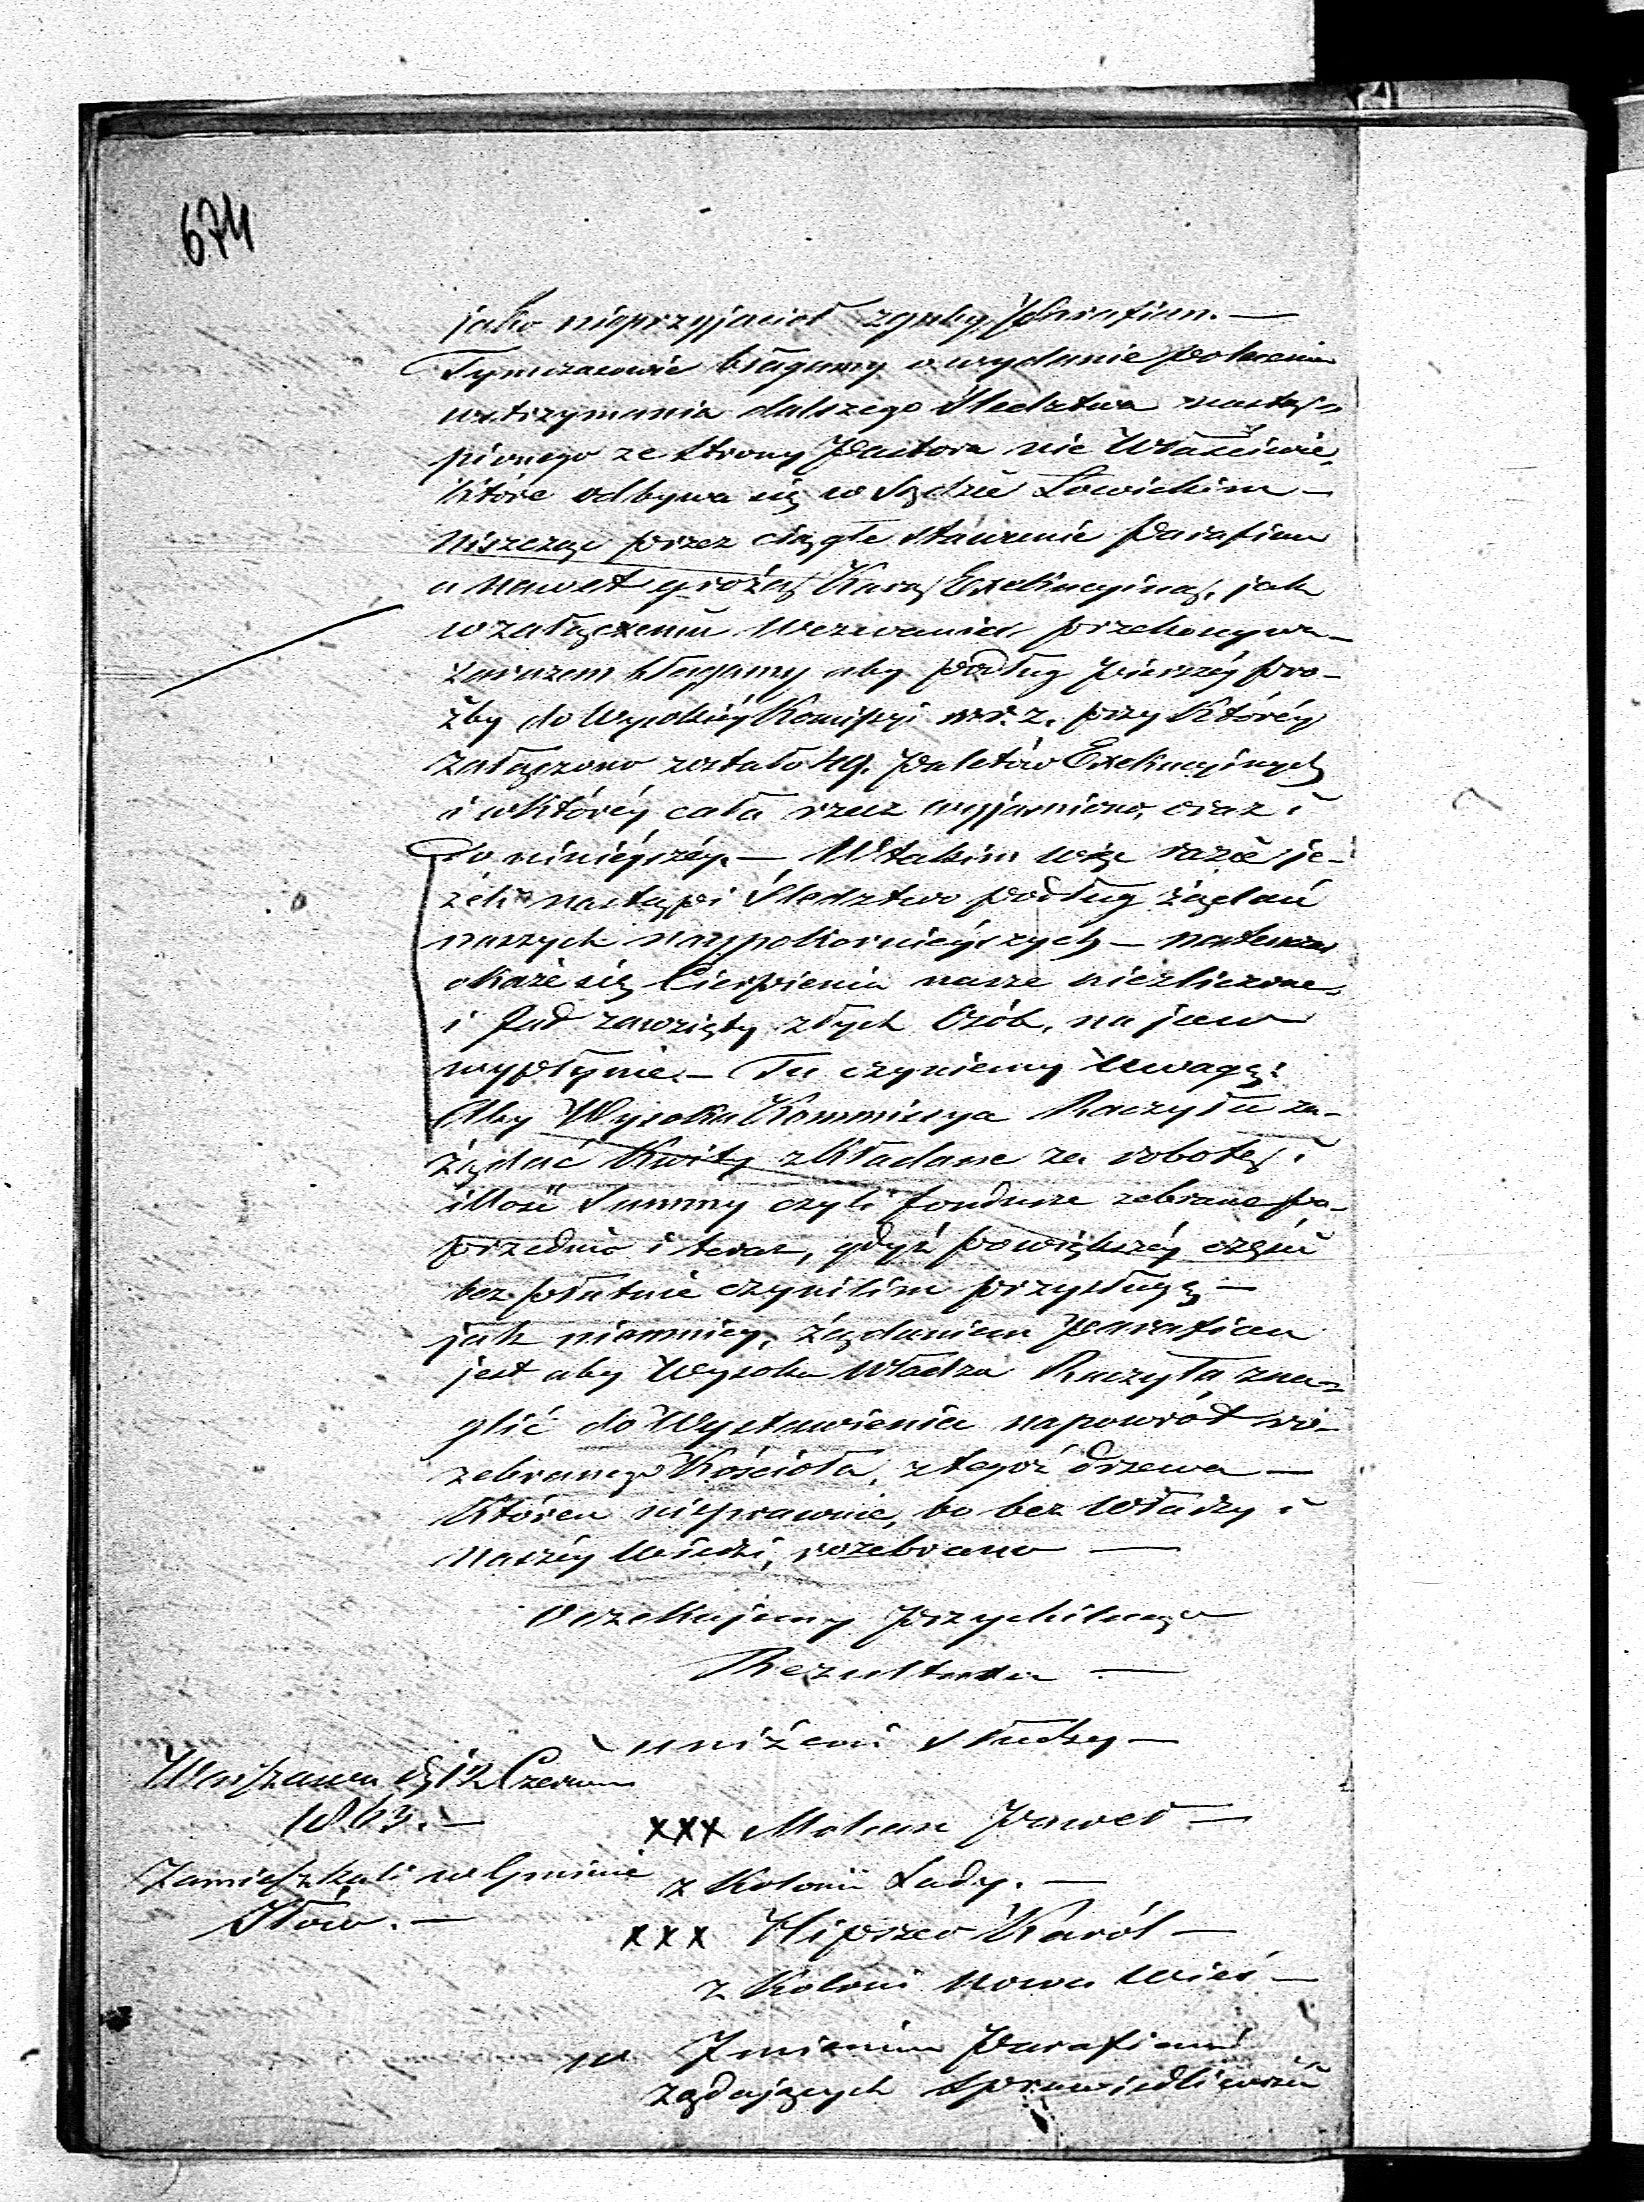 674
jako nieprzyjaciół zguby Parafian. —
Tymczasowie błagamy o wydanie polecenia
wstrzymania dalszego Sledztwa nastą-
pionego ze strony Pastora nie Właściwie,
które odbywa się w Sądzie Łowickim —
niszcząc przez ciągłe stawienie Parafian
a nawet grożą Karą Exekucyiną, jak
w załączeniu Wezwanie przekonywa —
zarazem błagamy aby podług pierwszéj pro-
źby do Wysokiéj Komissyi z. przy któréj
załączono zostało 49. Paletów Exekucyjnych
i w któréj cała rzecz wyjaśniona, oraz i
do niniéjszéj. — W takim więc razie je-
żeli nastąpi Sledztwo podług żądań
naszych naypokorniéjszych — nadewszas
okaże się Cierpienia nasze niezliczone,
i Jad zawzięty złych Osób, na jaw
wypłynie. — Tu czyniemy Uwagę:
Aby Wysoka Kommissya Raczyła za-
żądać Kwity składane za robotę i
illość Summy czyli fundusze zebrane po-
przednio i teraz, gdyż powiększéj części
bez płatnie czynilim przysługę —
jak niemniey, żądaniem Parafian
jest aby Wysoka Władza Raczyła zna-
glić do Wystawienia napowrót ro-
zebranego Kościoła, z tegoż drzewa —
któren nieprawnie, bo bez Władzy i
naszéj Wiedzi, rozebrano —
Oczekujemy przychilnego
Rezultatu —
uniżeni Słudzy —
Warszawa d. 12 Czerwca
1863. —
Zamieszkali w Gminie
Iłów. —
xxx Paweł —
z Kolonii Lady. —
xxx Hipszer Karól —
z Koloni Nowa Wieś —
w Imieniu Parafianów
żądających Sprawiedliwości